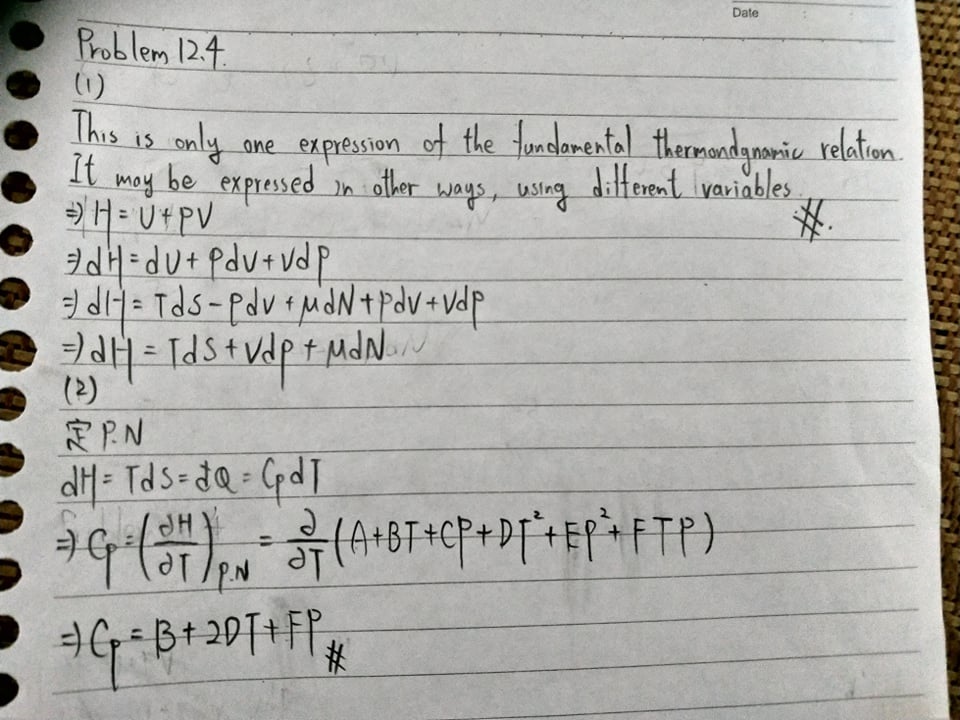 Date
Problem 12.4.
(1)
This is only one expression of the fundamental thermondgnamic relation.
It may be expressed in other ways, using different variables.
#.
⇒ H = U + PV
⇒ dH = dU + Pdv + Vdp
⇒ dH = TdS - pdv + μdN + pdv + Vdp
⇒ dH = TdS + Vdp + μdN
(2)
定 P.N
dH = TdS = đQ = CpdT
⇒ Cp = (∂H/∂T)P.N = ∂/∂T (A+BT+CP+DT²+EP²+FTP)
⇒ Cp = B + 2DT + FP #